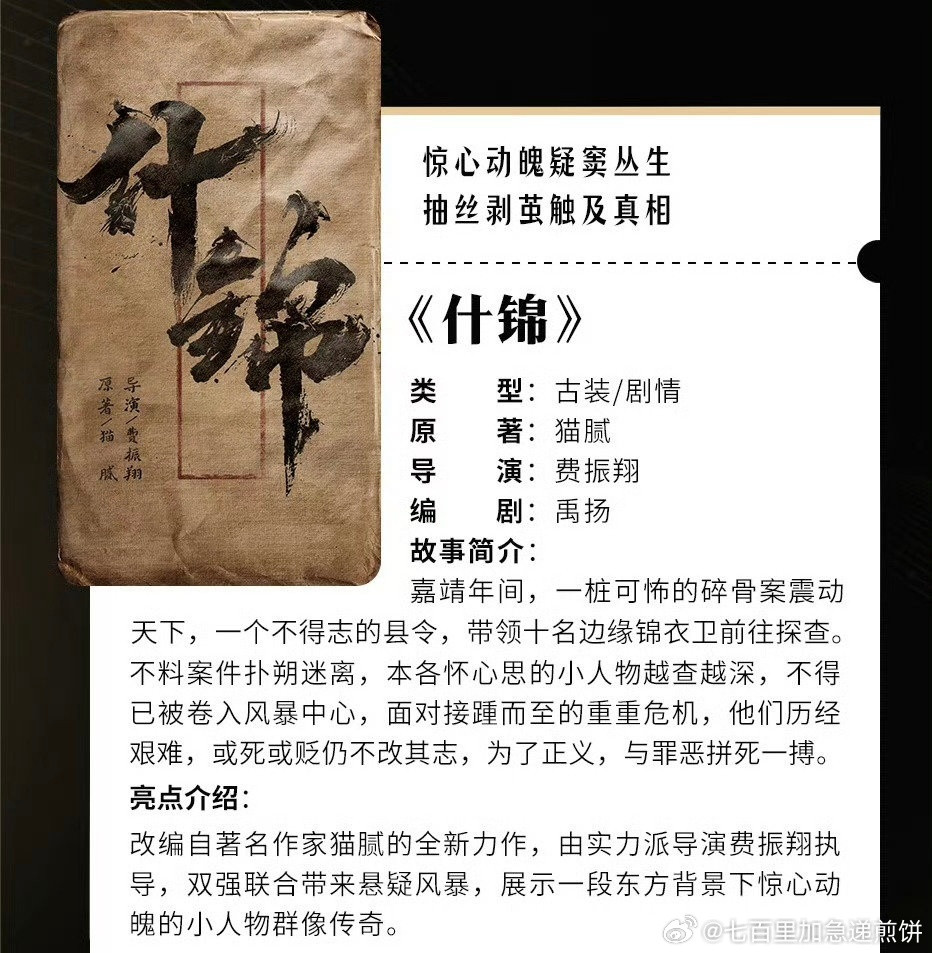 什锦
导演/费振翔
原著/猫腻
惊心动魄疑窦丛生
抽丝剥茧触及真相
《什锦》
类 型：古装/剧情
原 著：猫腻
导 演：费振翔
编 剧：禹扬
故事简介：
嘉靖年间，一桩可怖的碎骨案震动
天下，一个不得志的县令，带领十名边缘锦衣卫前往探查。
不料案件扑朔迷离，本各怀心思的小人物越查越深，不得
已被卷入风暴中心，面对接踵而至的重重危机，他们历经
艰难，或死或贬仍不改其志，为了正义，与罪恶拼死一搏。
亮点介绍：
改编自著名作家猫腻的全新力作，由实力派导演费振翔执
导，双强联合带来悬疑风暴，展示一段东方背景下惊心动
魄的小人物群像传奇。
@七百里加急递煎饼